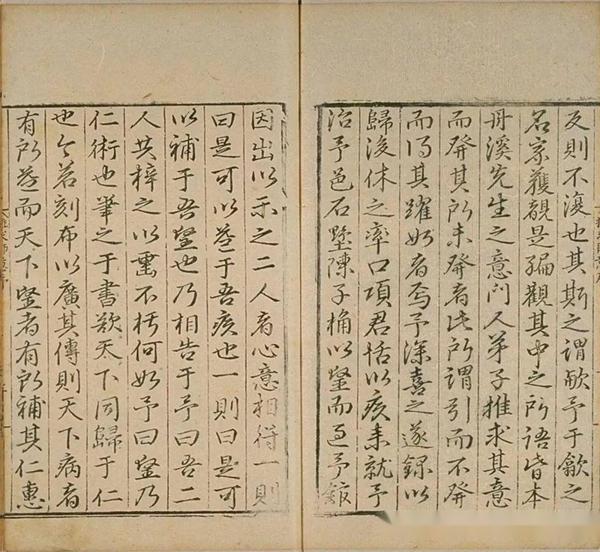 反則不復也其斯之謂歟予于歙之
名家獲覩是編觀其中之所語皆本
丹溪先生之意門人弟子推求其意
而發其所未發者此所謂引而不發
而得其躍如者焉予深喜之遂錄以
歸後休之率口項君恬以疾來就予
治予邑石墅陳子桷以醫而過予館
因出以示之二人者心意相得一則
曰是可以益于吾疾也一則曰是可
以補于吾醫也乃相告于予曰吾二
人共梓之以圖不朽何如予曰醫乃
仁術也筆之于書欲天下同歸于仁
也今若刻布以廣其傳則天下病者
有所益而天下醫者有所補其仁惠